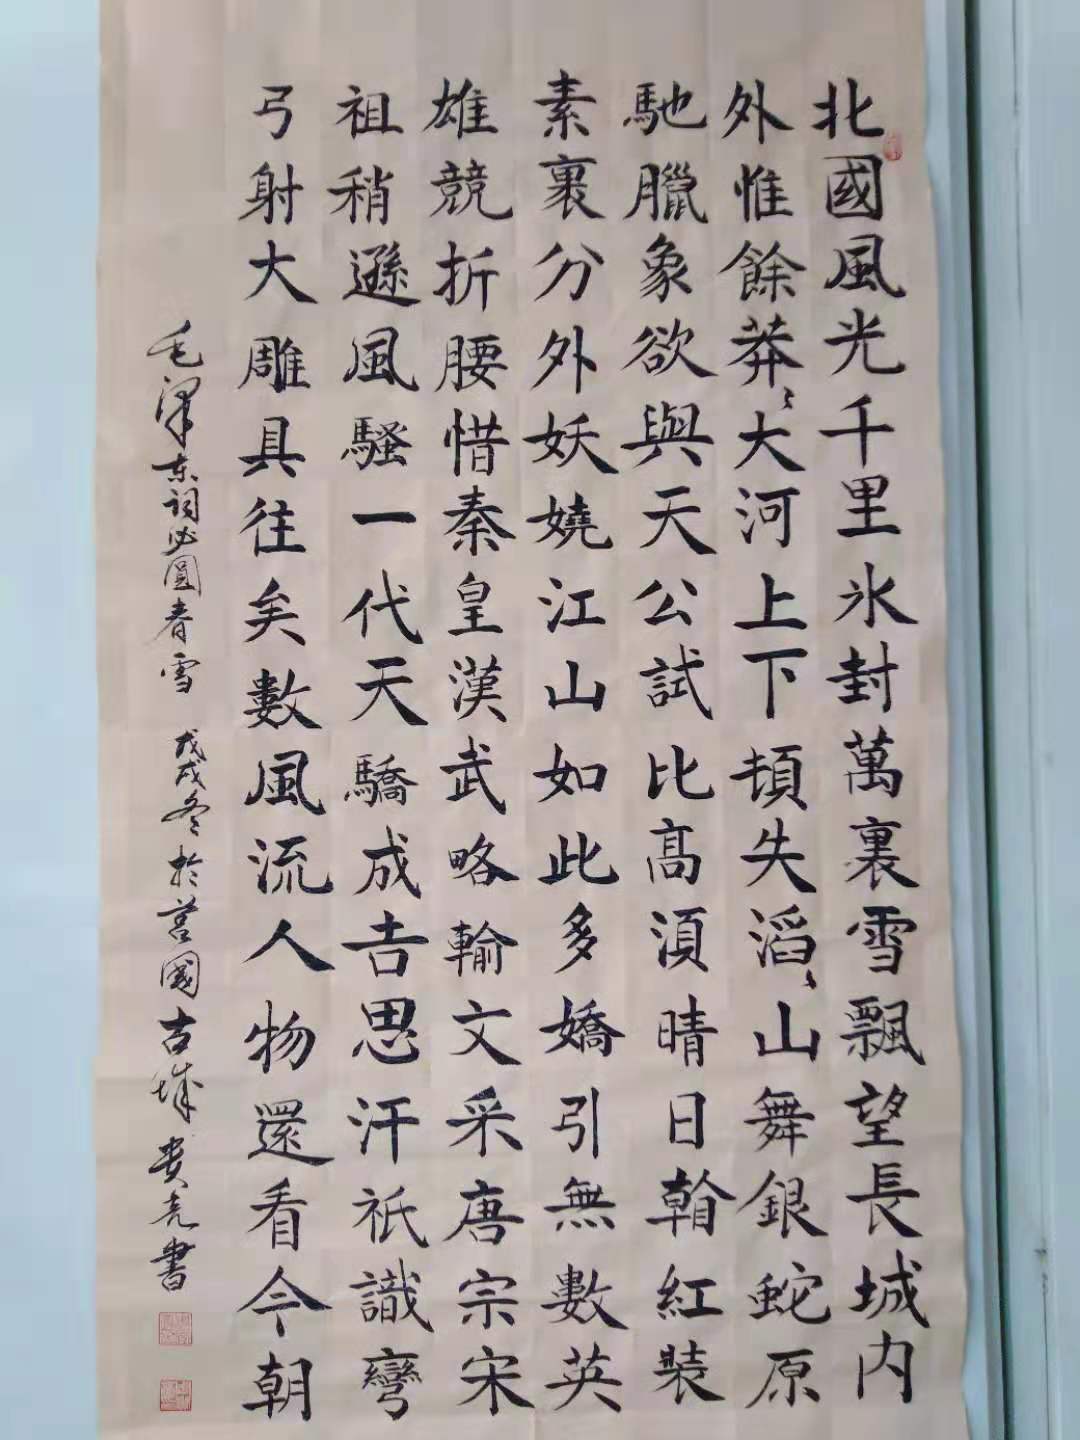 北國風光千里氷封萬裏雪飄望長城内
外惟餘莽〻大河上下頓失滔〻山舞銀蛇原
馳臘象欲與天公試比高湏晴日翰紅裝
素裹分外妖嬈江山如此多嬌引無數英
雄競折腰惜秦皇漢武略輸文采唐宗宋
祖稍遜風騷一代天驕成吉思汗祇識彎
弓射大雕具往矣數風流人物還看今朝
毛澤东词沁圆春雪 戊戌冬於莒國古城贵亮書